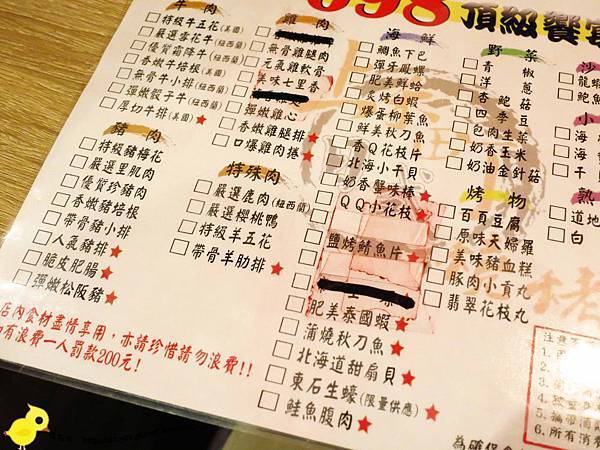 698 頂級饗宴
牛肉
特級牛五花(美國)
嚴選雪花牛(紐西蘭)
優質霜降牛(紐西蘭)
香嫩牛培根(美國)
無骨牛小排(紐西蘭)
彈嫩骰子牛(紐西蘭)
厚切牛排(美國)★
豬肉
特級豬梅花
嚴選里肌肉
優質珍豬肉
香嫩豬培根
帶骨豬小排
人氣豬排★
脆皮肥腸★
彈嫩松阪豬★
雞肉
無骨雞腿肉
元氣雞軟骨
美味七里香
彈嫩雞心
香嫩雞腿排★
口爆雞肉捲★
特殊肉
嚴選鹿肉(紐西蘭)
嚴選櫻桃鴨
特級羊五花
帶骨羊肋排★
海鮮
鯛魚下巴
彈牙鳳螺
肥美鮮蛤
炙烤白蝦
爆蛋柳葉魚
鮮美秋刀魚
香Q花枝片
北海小干貝
奶香蟹味棒★
QQ小花枝★
鹽烤鯖魚片★
肥美泰國蝦★
蒲燒秋刀魚
北海道甜扇貝★
東石生蠔(限量供應)★
鮭魚腹肉★
野菜
青椒
洋蔥
杏鮑菇
四季豆
包肉生菜
奶香玉米
奶油金針菇
烤物
百頁豆腐
原味天婦羅
美味豬血糕
豚肉小貢丸
翡翠花枝丸
沙
龍蝦
鮑魚
小
海
海
干貝
熟
道地
白
店內食材盡情享用,亦請珍惜請勿浪費!!
有浪費一人罰款200元!
注意
1.
2.
3.
4.
5.攜帶
6.所有消費
為確保食